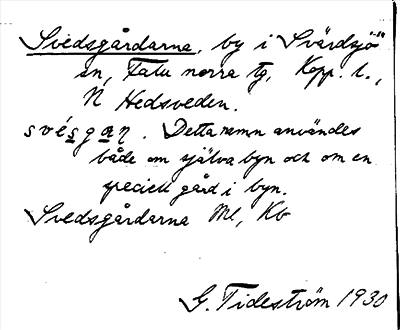 Svedsgårdarna, by i Svärdsjö
sn, Falu norra tg, Kopp. l.,
N Hedsveden.
svésgaṇ. Detta namn användes
både om själva byn och om en
speciell gård i byn.
Svedsgårdarna Ml, Kb
G. Tideström 1930